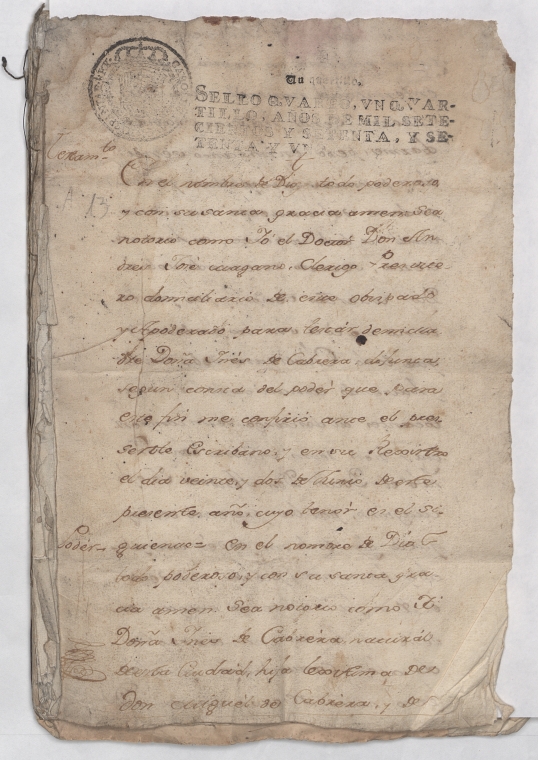 Un quartillo.
SELLO QVARTO, VN QVAR-
TILLO, AÑOS DE MIL SETE-
CIENTOS Y SETENTA, Y SE-
TENTA Y VN
Testamto
En el nombre de Dios todo poderoso
y con su santa gracia amen. Sea
notorio como Yo el Doctor Don An
dres José Clerigo Presvite
ro domiciliario de este obispado
y Apoderado para testár de
Doña Ynés de Cabrera difunta
segun consta del podér que para
este fin me confirio ante el pre
sente Escribano, y en su Rexistro
el dia veinte, y dos de Junio, de este
presente año, cuyo tenór es el si-
Podér
guiente= En el nombre de Dios
todo poderoso, y con su santa gra
cia amen. Sea notorio como Yo
Doña Ynes de Cabrera naturál
de esta Ciudad, hija lexitima de
Don Miguél de Cabrera, y de